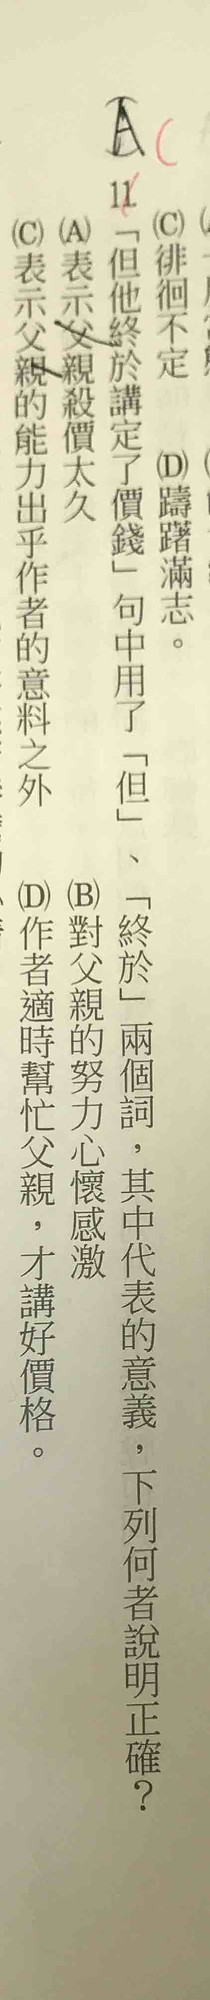 (C)徘徊不定　(D)躊躇滿志。
A C
11.「但他終於講定了價錢」句中用了「但」、「終於」兩個詞，其中代表的意義，下列何者說明正確？
(A)表示父親殺價太久　(B)對父親的努力心懷感激
(C)表示父親的能力出乎作者的意料之外　(D)作者適時幫忙父親，才講好價格。